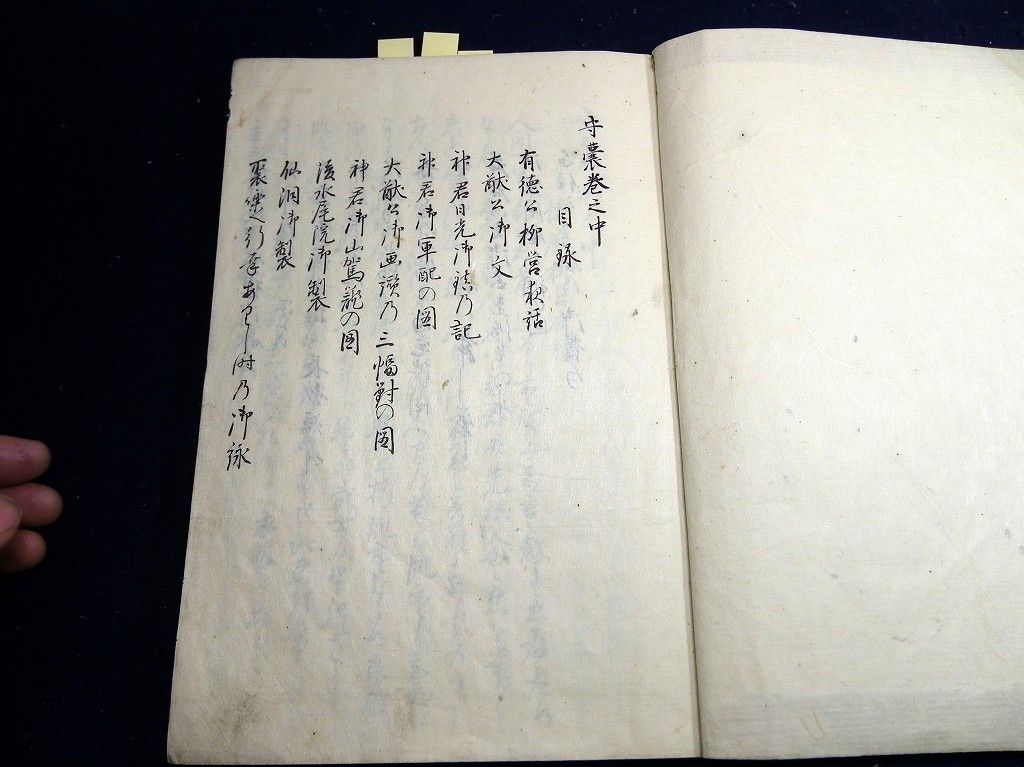 守嚢巻之中
目录
有徳公柳営夜話
大猷公御文
神君日光御鎮乃記
神君御軍配の図
大猷公御画讃乃三幅對の図
神君御山駕籠の図
後水尾院御製
仙洞御製
聚楽行幸ありし時乃御詠